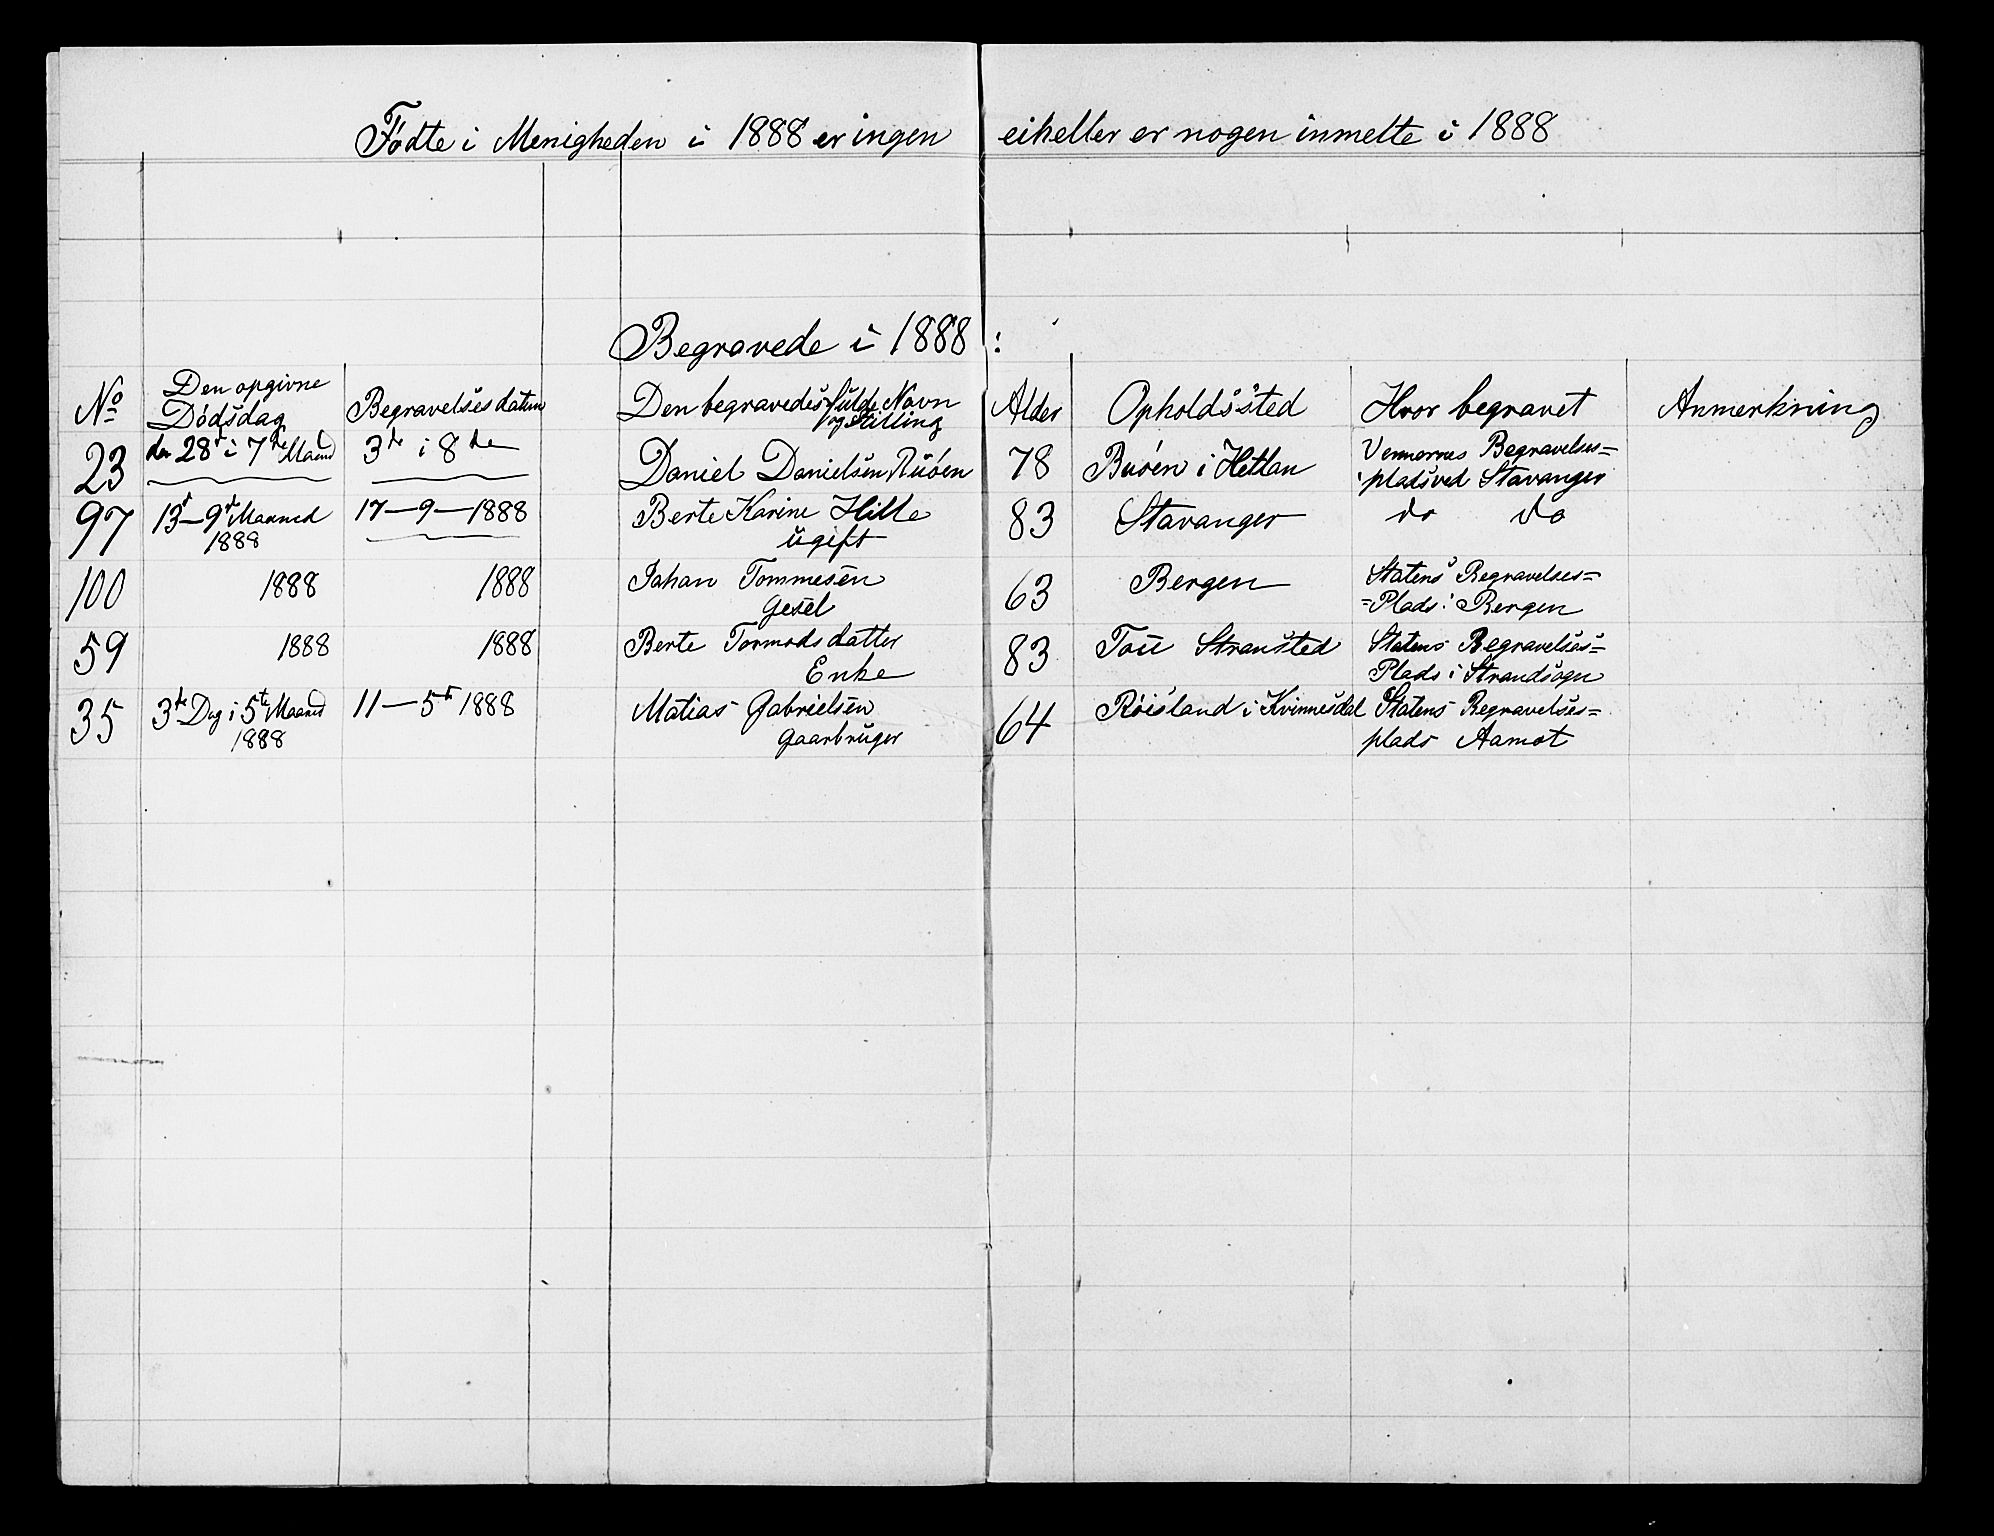 Fødte i Menigheden i 1888 er ingen eiheller er nogen inmelte i 1888
Begravede i 1888 :
No Den opgivne Dødsdag Begravelsesdatum Den begravedes fulde Navn og Stilling Alder Opholdssted Hvor begravet Anmerkning
23 den 28d i 7de Maaned 3de i 8de Daniel Danielsen Buøen 78 Buøen i Hetlan Vennernes Begravelses=
pladsved Stavanger
97 13d – 9d Maaned 17 – 9 – 1888 Berte Karine Hille 83 Stavanger do do
1888 ugift
100 1888 1888 Johan Tommesen 63 Bergen Statens Begravelses=
Gesel =Plads i Bergen
59 1888 1888 Berte Tormodsdatter 83 Tou Stransted Statens Begravelses=
Enke Plads i Strandsogn
35 3de Dag i 5te Maaned 11 – 5t 1888 Matias Gabrielsen 64 Røisland i Kvinnesdal Statens Begravelses=
1888 Gaarbruger plads Aamot